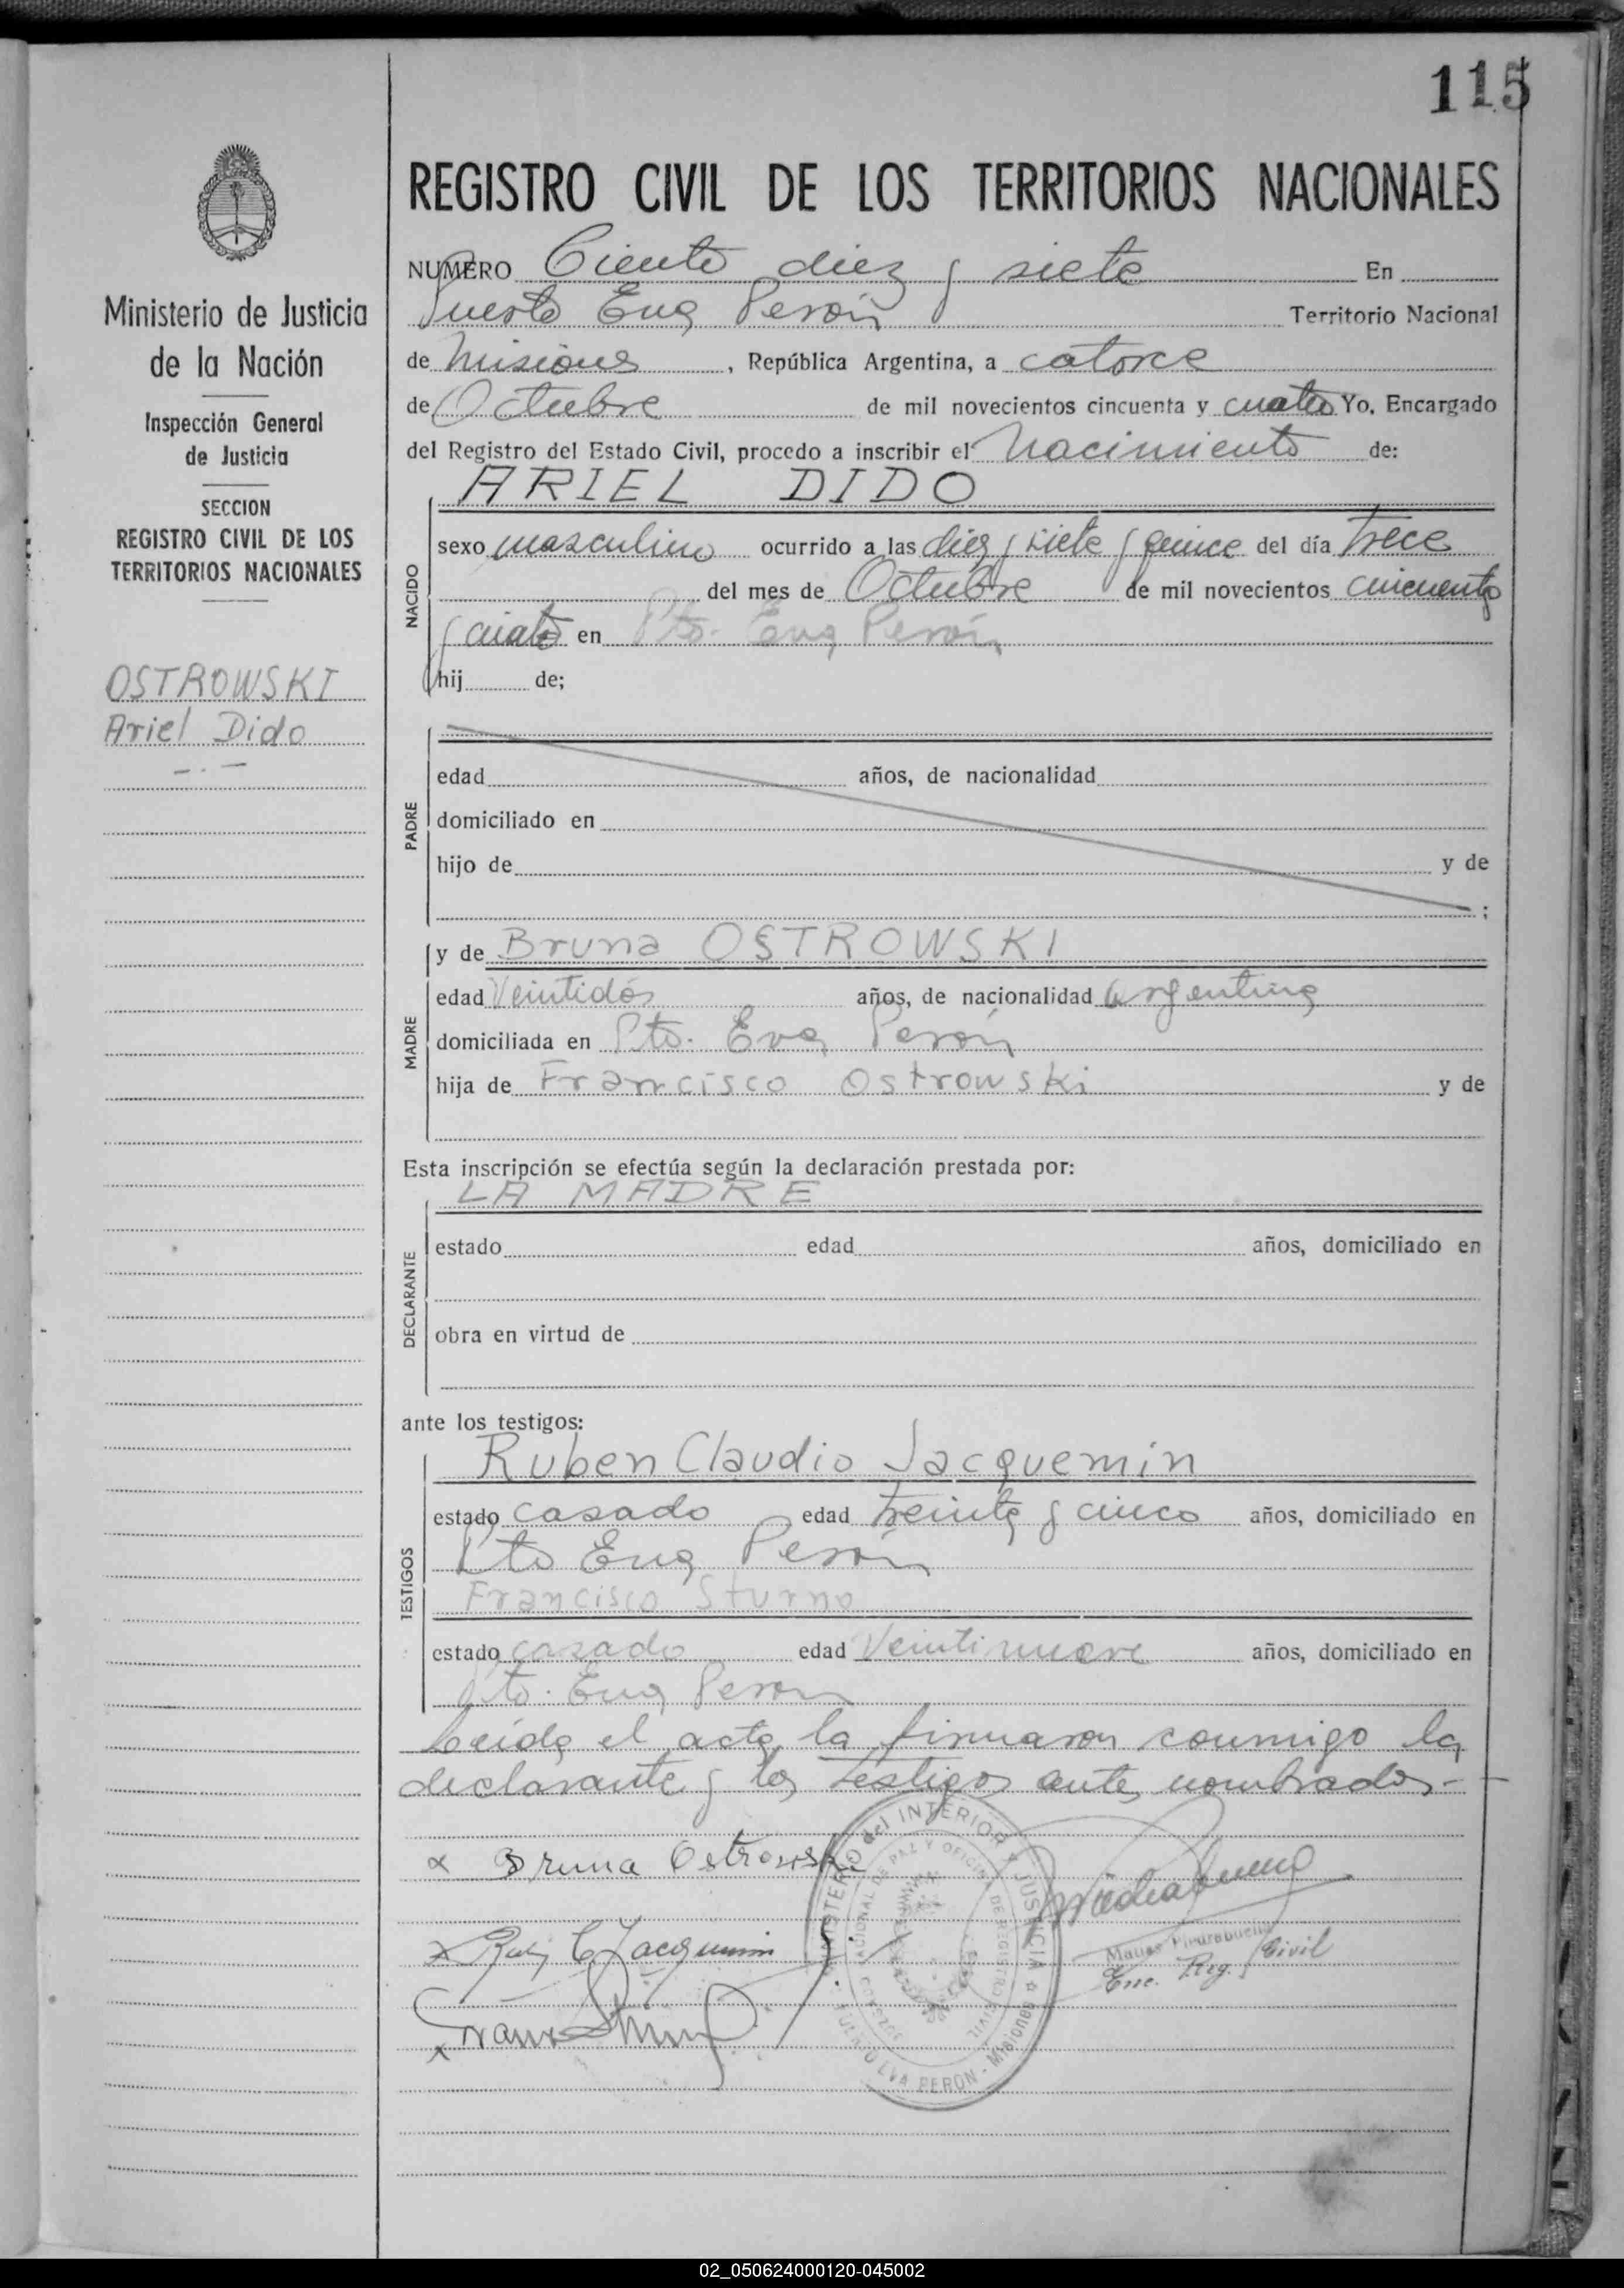 115
REGISTRO CIVIL DE LOS TERRITORIOS NACIONALES
Ministerio de Justicia
de la Nación
Inspección General
de Justicia
SECCION
REGISTRO CIVIL DE LOS
TERRITORIOS NACIONALES
OSTROWSKI
Ariel Dido
NUMERO Ciento diez y siete En
Puerto Eva Perón Territorio Nacional
de Misiones, República Argentina, a catorce
de Octubre de mil novecientos cincuenta y cuatro Yo, Encargado
del Registro del Estado Civil, procedo a inscribir el Nacimiento de:
NACIDO
ARIEL DIDO
sexo masculino ocurrido a las diez y siete y quince del día trece
del mes de Octubre de mil novecientos cincuenta
y cuatro en Pto. Eva Perón
hij de;
PADRE
edad años, de nacionalidad
domiciliado en
hijo de y de
;
MADRE
y de Bruna OSTROWSKI
edad Veintidós años, de nacionalidad argentina
domiciliada en Pto. Eva Perón
hija de Francisco Ostrowski y de
Esta inscripción se efectúa según la declaración prestada por:
DECLARANTE
LA MADRE
estado edad años, domiciliado en
obra en virtud de
ante los testigos:
TESTIGOS
Ruben Claudio Jacquemin
estado casado edad treinta y cinco años, domiciliado en
Pto Eva Perón
Francisco Sturno
estado casado edad Veintinueve años, domiciliado en
Pto. Eva Peron
Leída el acta la firmaron conmigo la
declarante y los testigos ante nombrados.-
x Bruna Ostrowski
MINISTERIO del INTERIOR y JUSTICIA
PUERTO EVA PERON - Misiones
x C Jacquemin
Enc. Reg. Civil
x
02_050624000120-045002